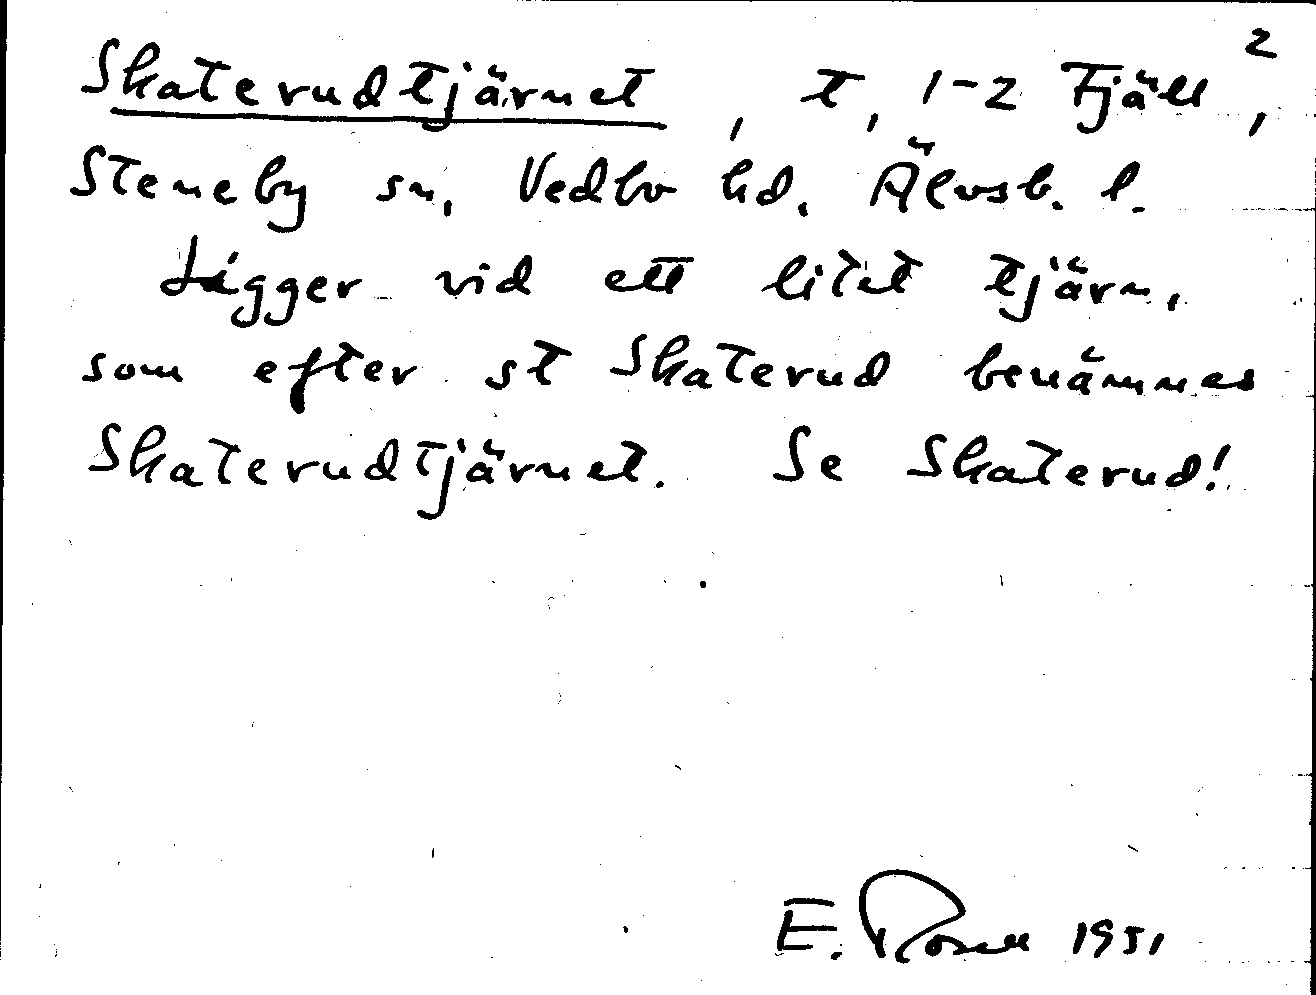 Skaterudtjärnet, t, 1-2 Fjäll²,
Steneby sn, Vedbo hd. Älvsb. l.
Ligger vid ett litet tjärn,
som efter st Skaterud benämnes
Skaterudtjärnet. Se Skaterud!
E. Rosell 1951